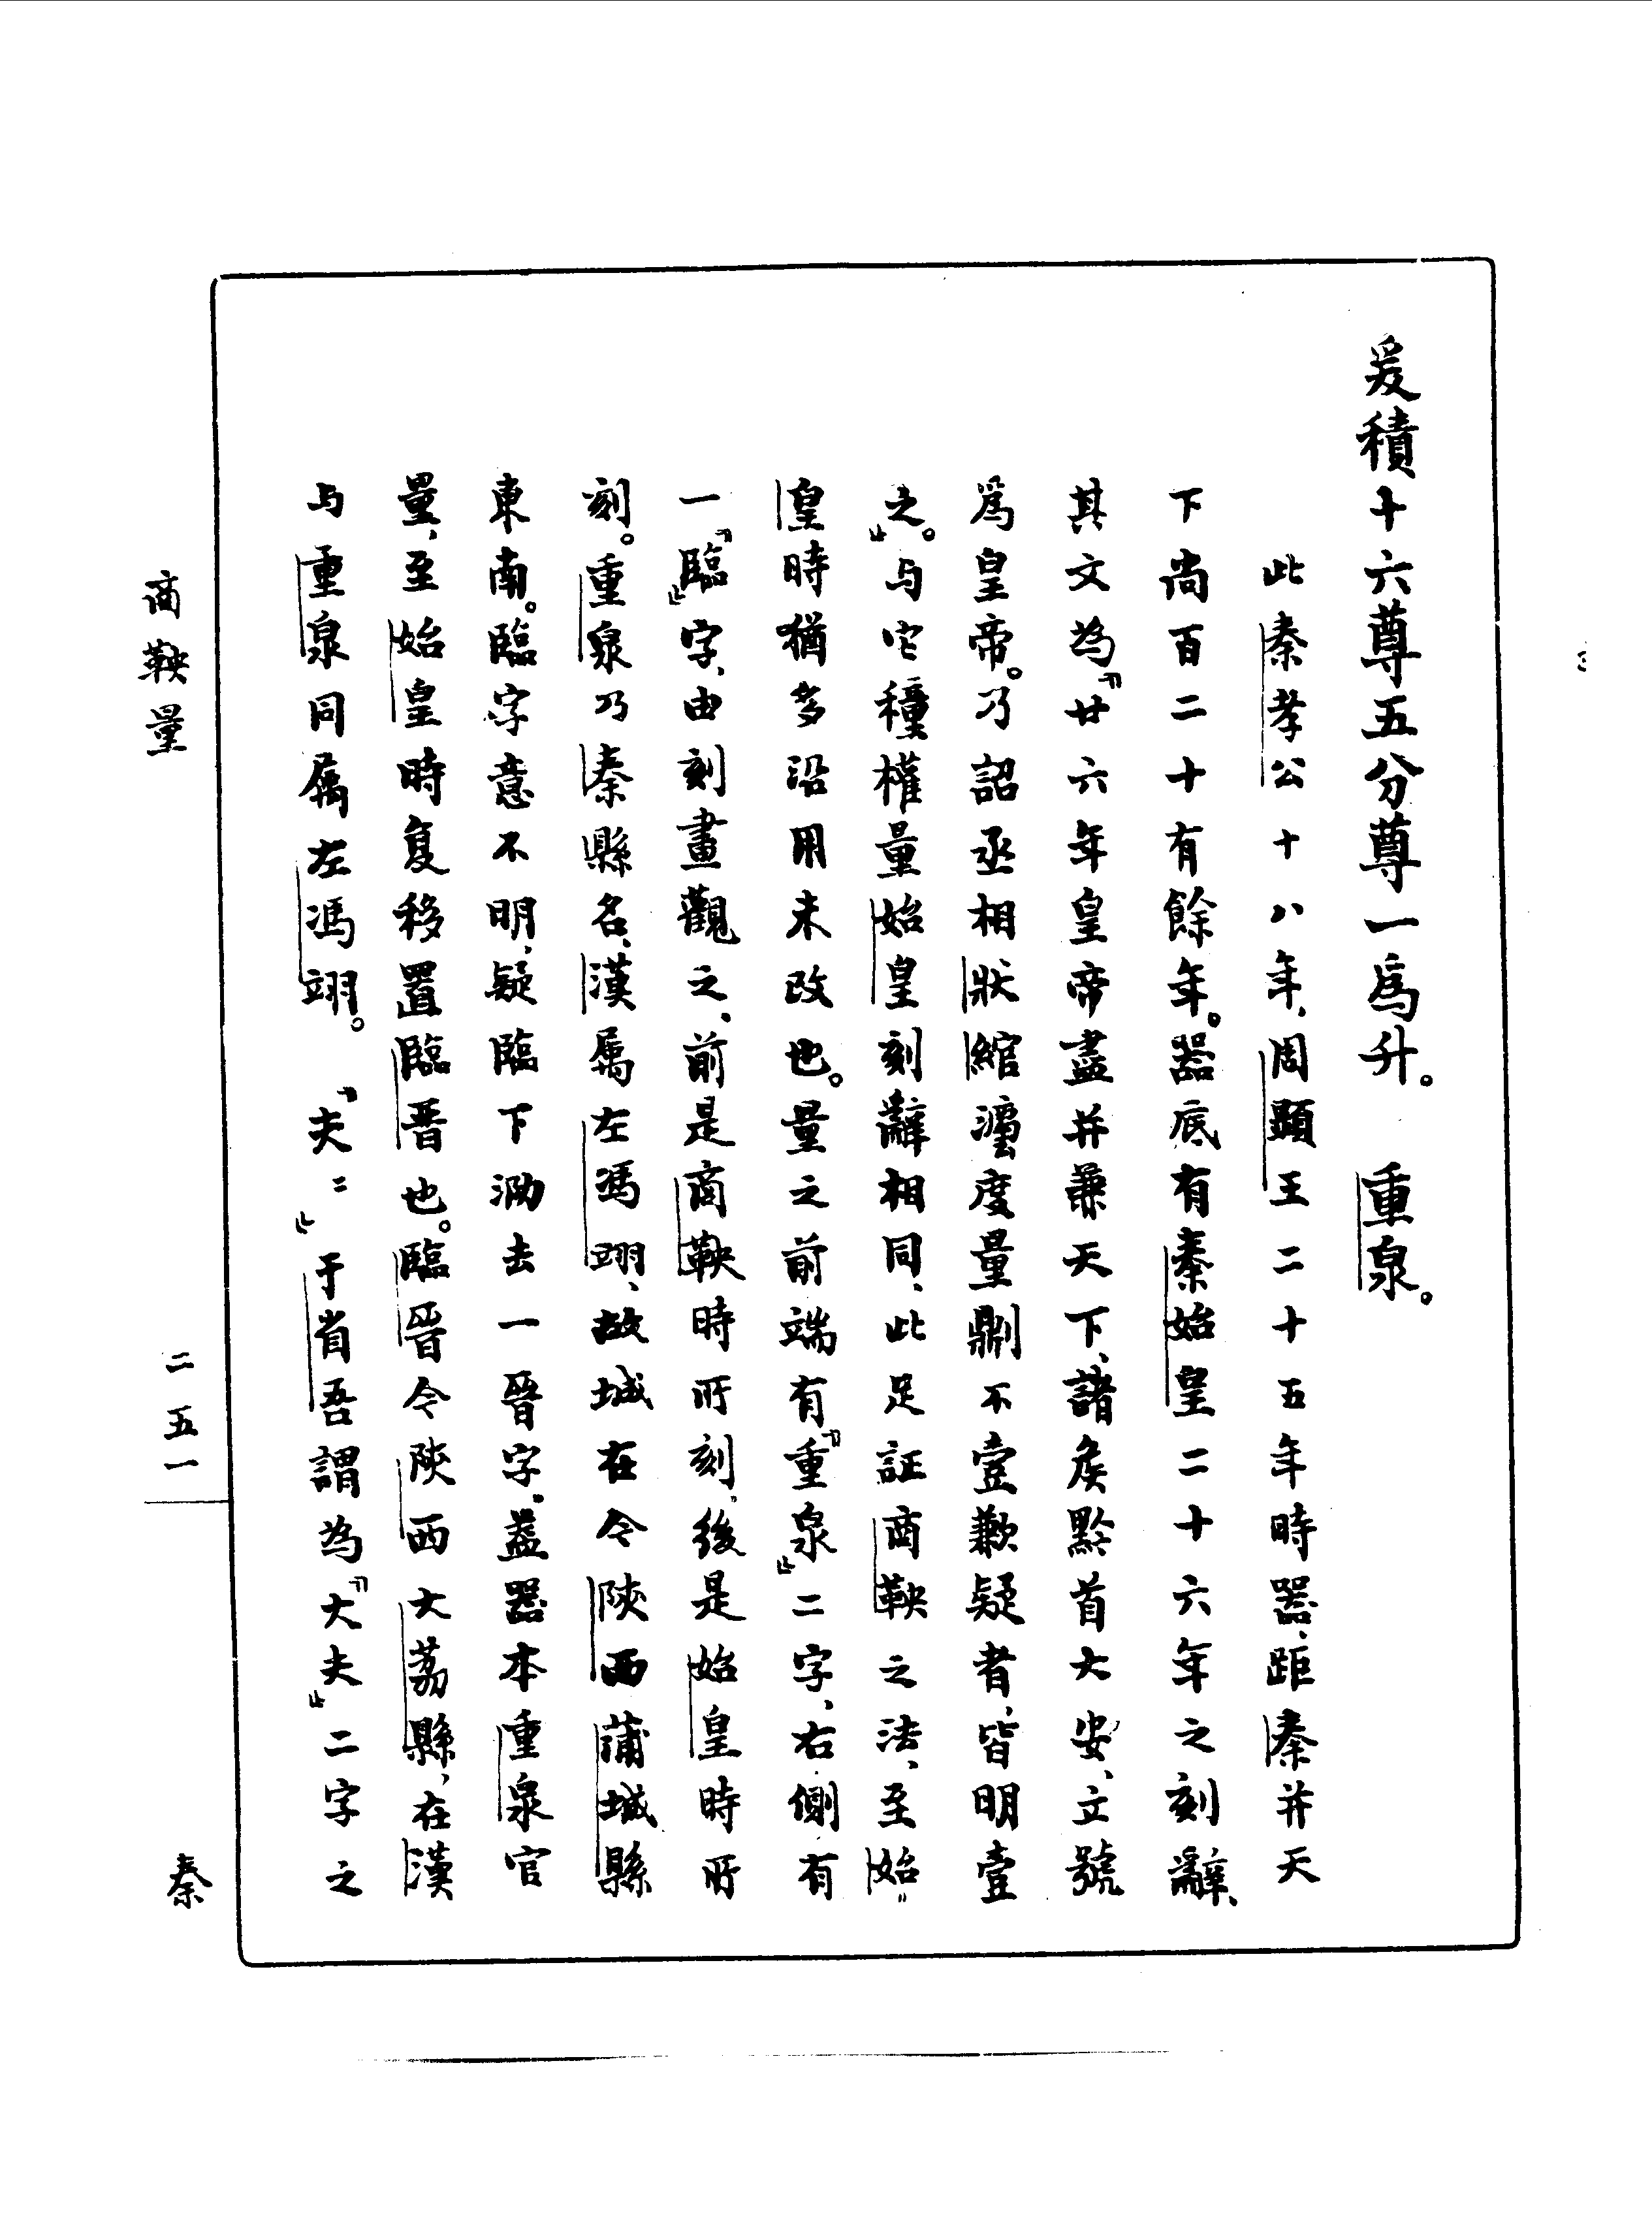 爰積十六尊五分尊一爲升。　重泉。
此秦孝公十八年、周顯王二十五年時器、距秦并天
下尚百二十有餘年。器底有秦始皇二十六年之刻辭、
其文為『廿六年皇帝盡并兼天下、諸矦黔首大安、立號
爲皇帝。乃詔丞相狀綰灋度量鼎刂不壹歉疑者、皆明壹
之。』与它種權量始皇刻辭相同、此足証商鞅之法、至始
皇時猶多沿用未改也。量之前端有『重泉』二字、右側有
一『臨』字、由刻畫觀之、前是商鞅時所刻、後是始皇時所
刻。重泉乃秦縣名、漢属左馮翊、故城在今陝西蒲城縣
東南。臨字意不明、疑臨下泐去一晉字、蓋器本重泉官
量、至始皇時复移置臨晋也。臨晉今陝西大荔縣、在漢
与重泉同属左馮翊。『夫＝』于省吾謂為『大夫』二字之
商鞅量
二五一
秦